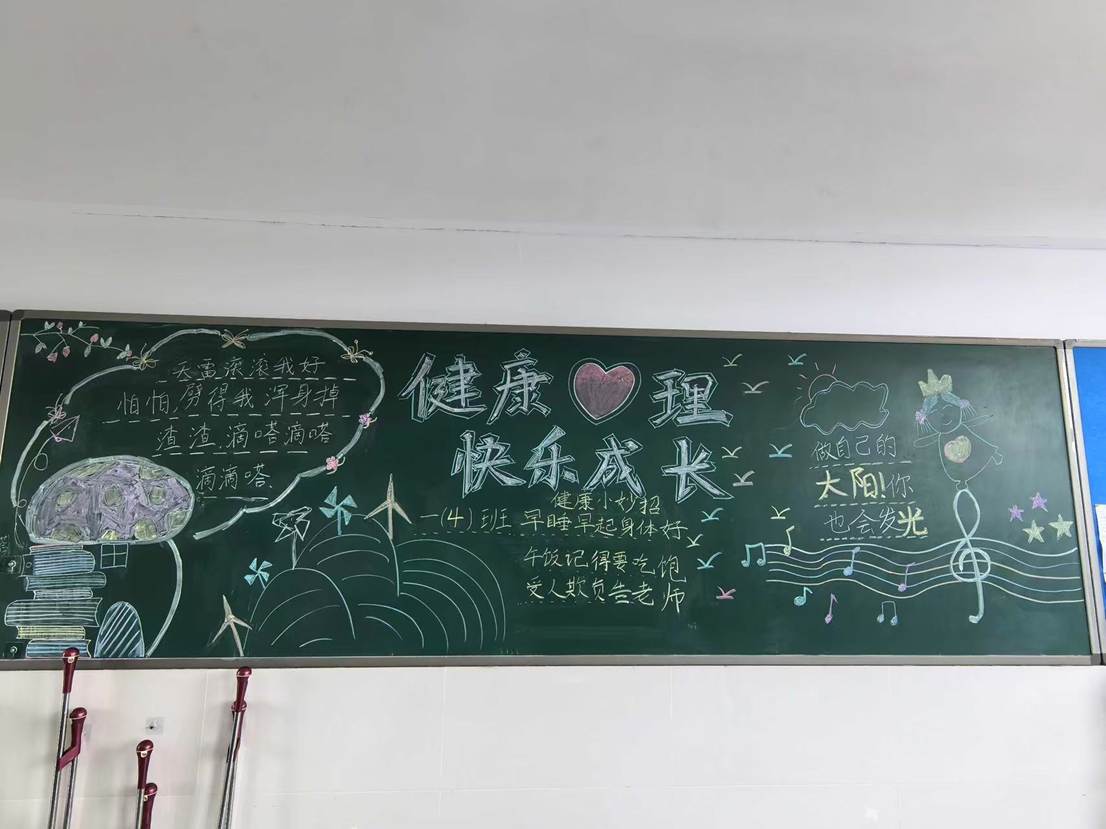 天雷滚滚我好
怕怕,劈得我浑身掉
渣渣.滴嗒滴嗒
滴滴嗒.
健康 理
快乐成长
健康小妙招
一(4)班 早睡早起身体好
午饭记得要吃饱
受人欺负告老师
做自己的
太阳!你
也会发光